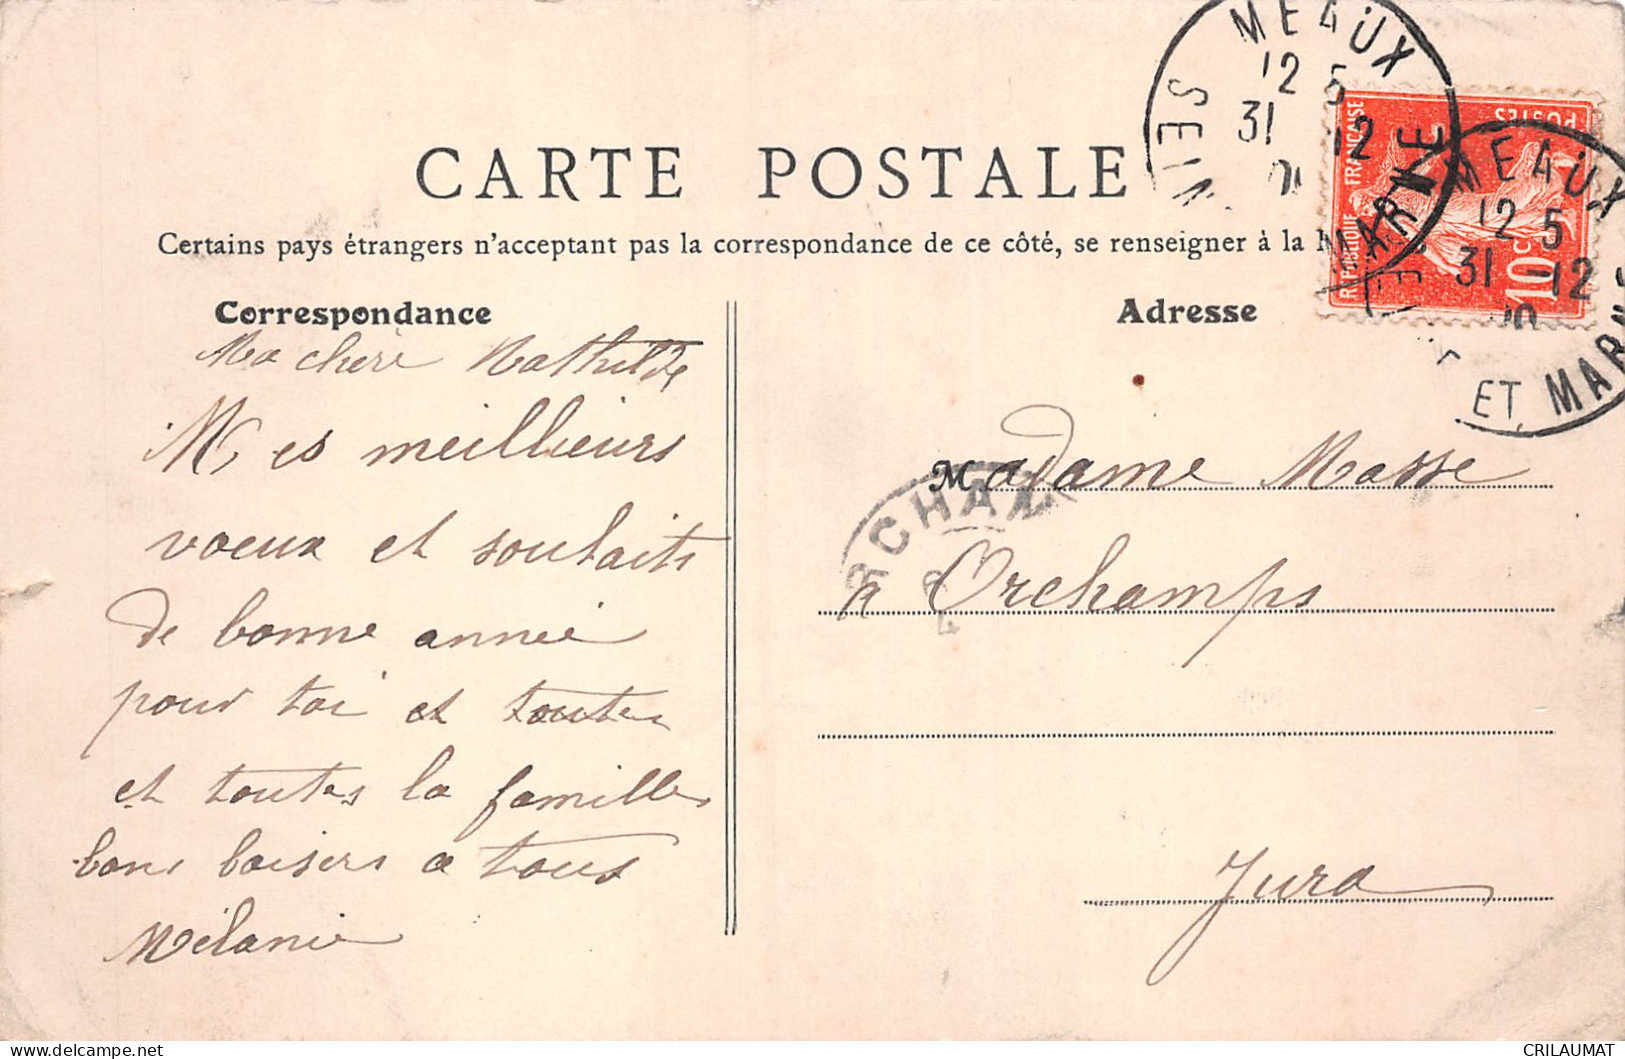 CARTE POSTALE
Certains pays étrangers n'acceptant pas la correspondance de ce côté, se renseigner à la
Correspondance
Ma chère Mathilde
Mes meillieurs
voeux et souhaits
de bonne année
pour toi et toutes
et toutes la familles
bons baisers a tous
Mélanie
Adresse
Madame Masse
a Orchamps
Jura
MEAUX
12 5
31 12
SEINE
MARNE
MEAUX
12 5
31 -12
10
ET MARNE
RCHAM
REPUBLIQUE FRANÇAISE
POSTES
10c
CRILAUMAT